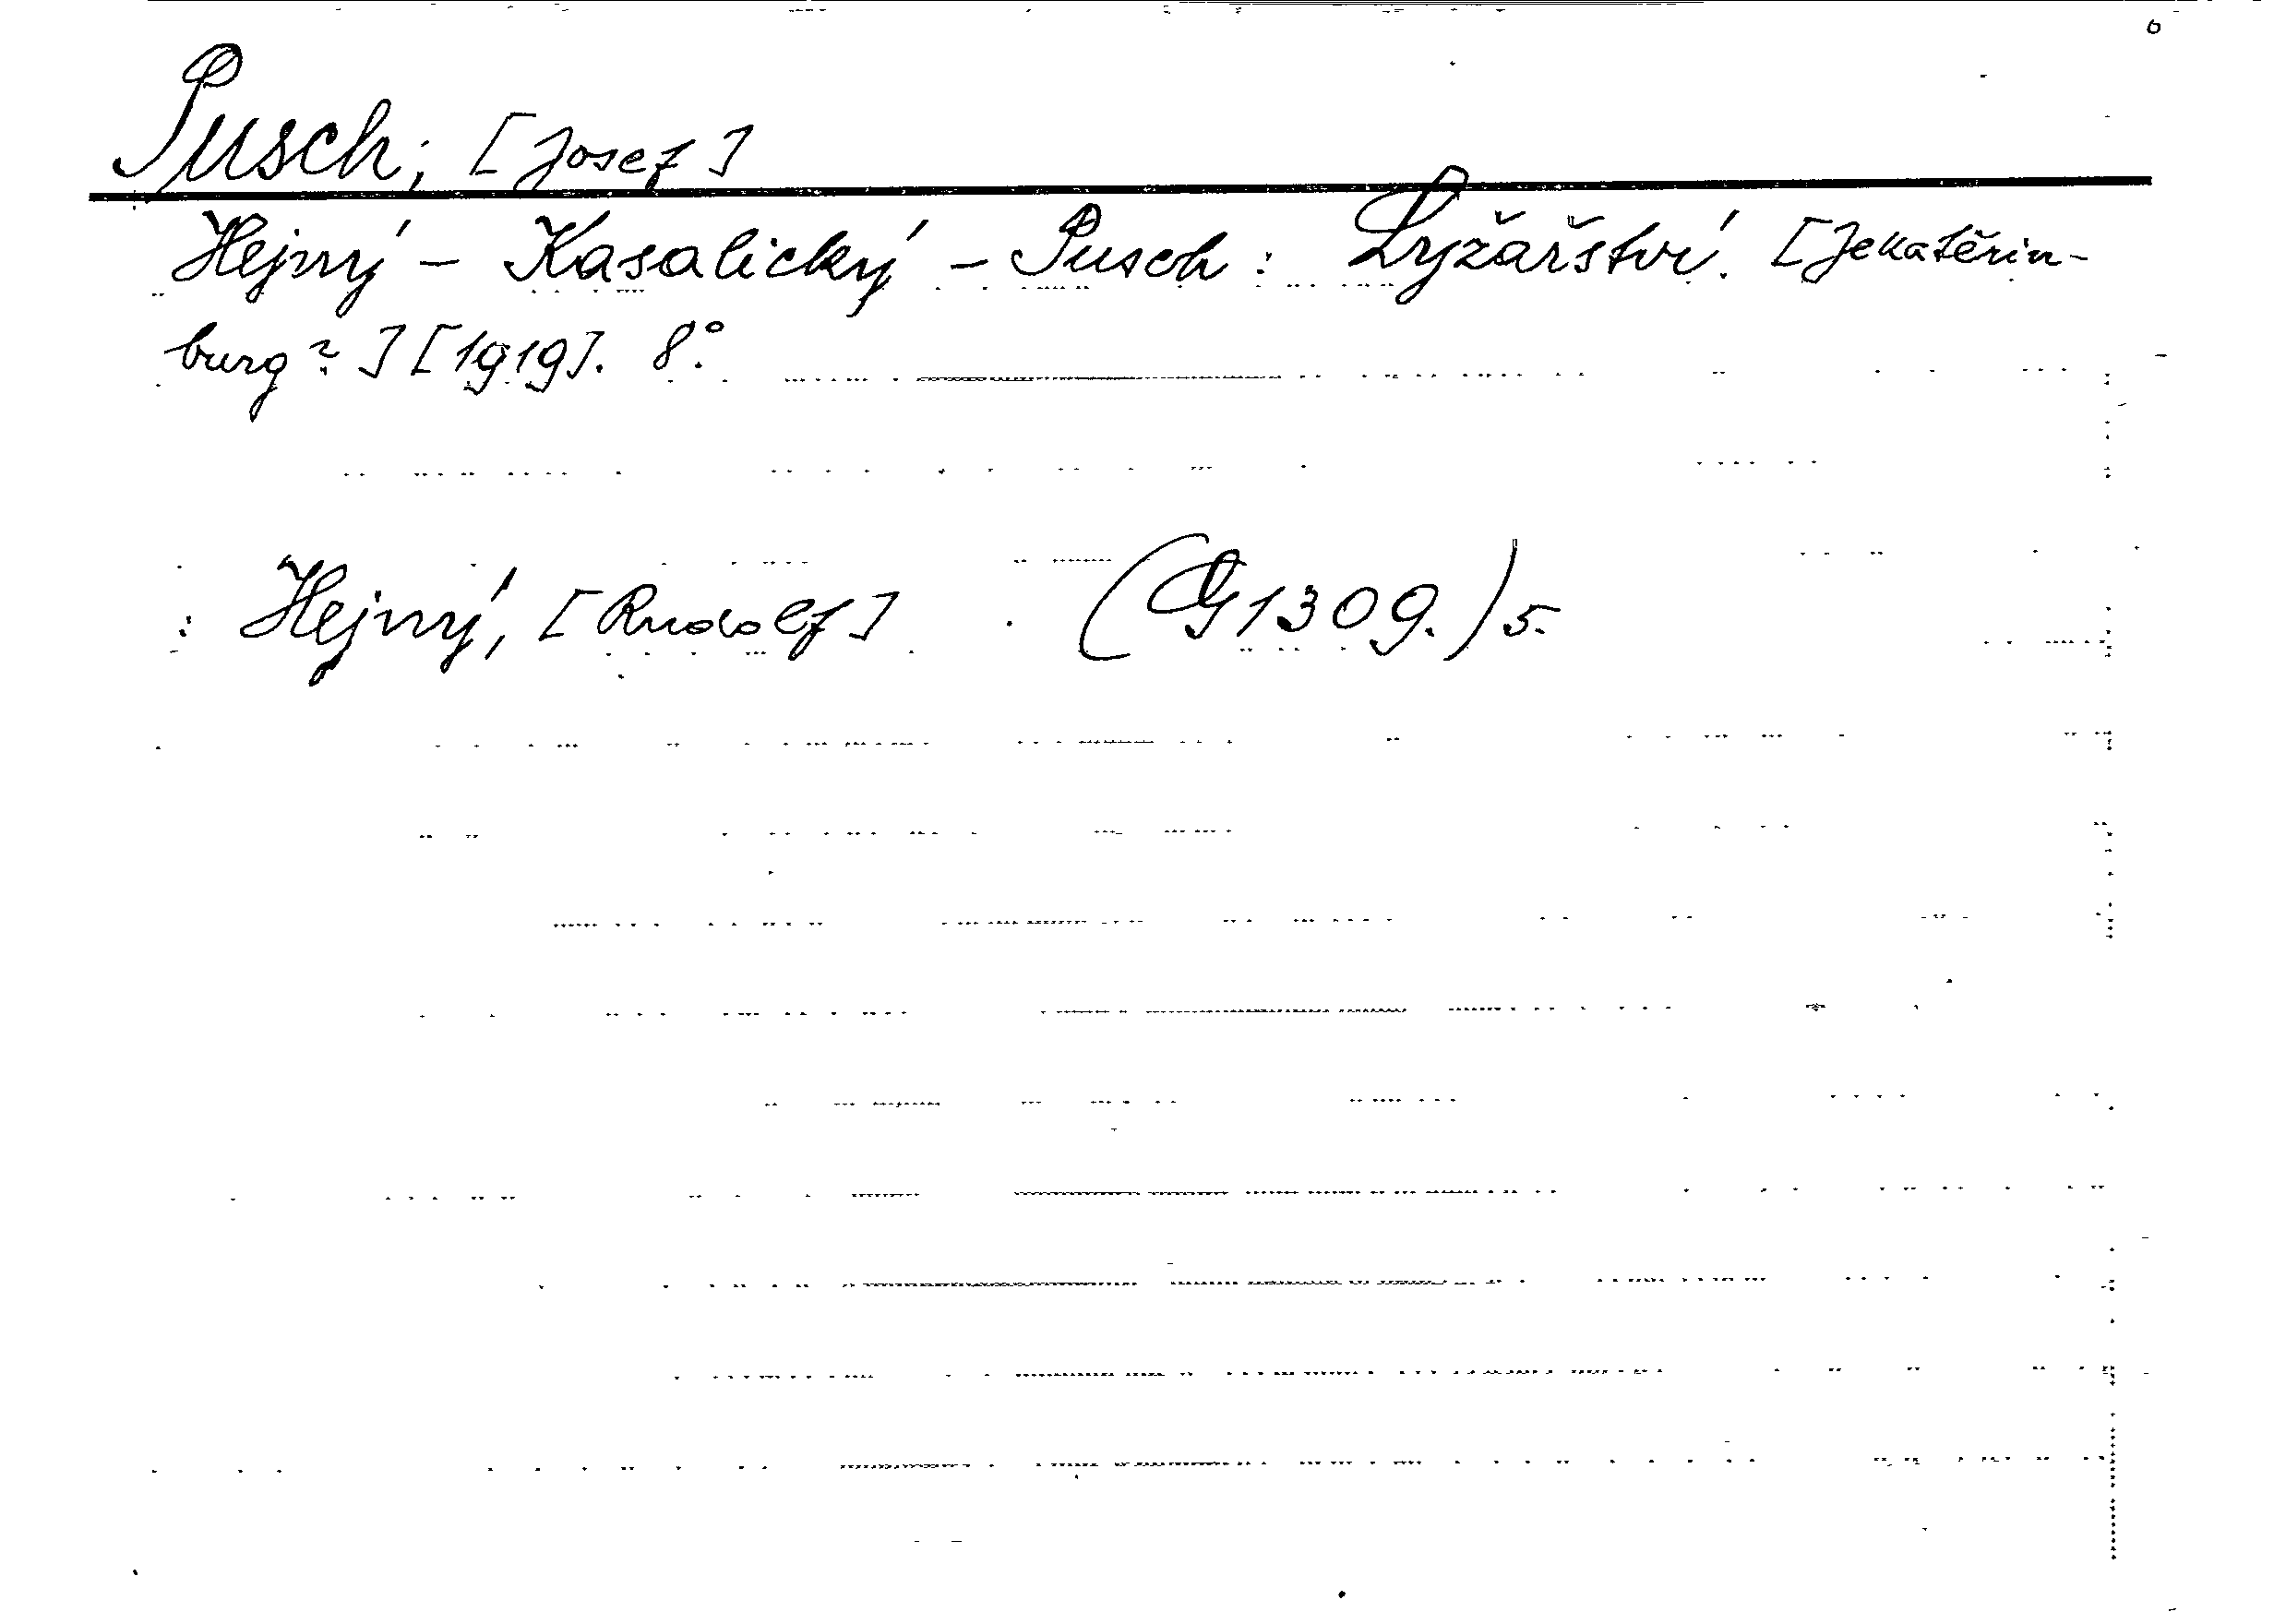 Pusch, [Josef]
Hejný - Kasalický - Pusch: Lyžařství. [Jekatěrin-
burg?] [1919]. 8°.
: Hejný, [Rudolf] (G 1309.) 5.